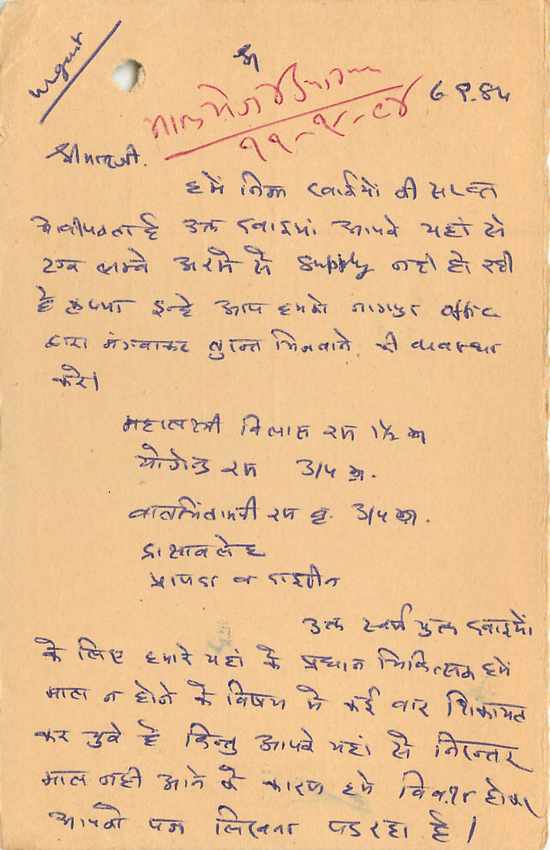 urgent
ॐ
माल भेज दिया
११-९-८४
६.९.84
श्रीमानजी.
हमें निम्न दवाईयों की सख्त
आवश्यकता है उक्त दवाइयां आपके यहां से
एक लम्बे अरसे से supply नहीं हो रही
है कृपया इन्हे आप हमको नागपुर office
द्वारा मंगवाकर तुरन्त भिजवाने की व्यवस्था
करें।
महालक्ष्मी विलास रस 1½
योगेन्द्र रस 3/4
वातचिंतामणी रस बृ. 3/4
द्राक्षावलेह
उक्त स्वर्ण युक्त दवाइयों
के लिए हमारे यहां के प्रधान चिकित्सक हमें
माल न होने के विषय में कई बार शिकायत
कर चुके है किन्तु आपके यहां से निरन्तर
माल नही आने के कारण हमे विवश होकर
आपको पत्र लिखना पड रहा है।